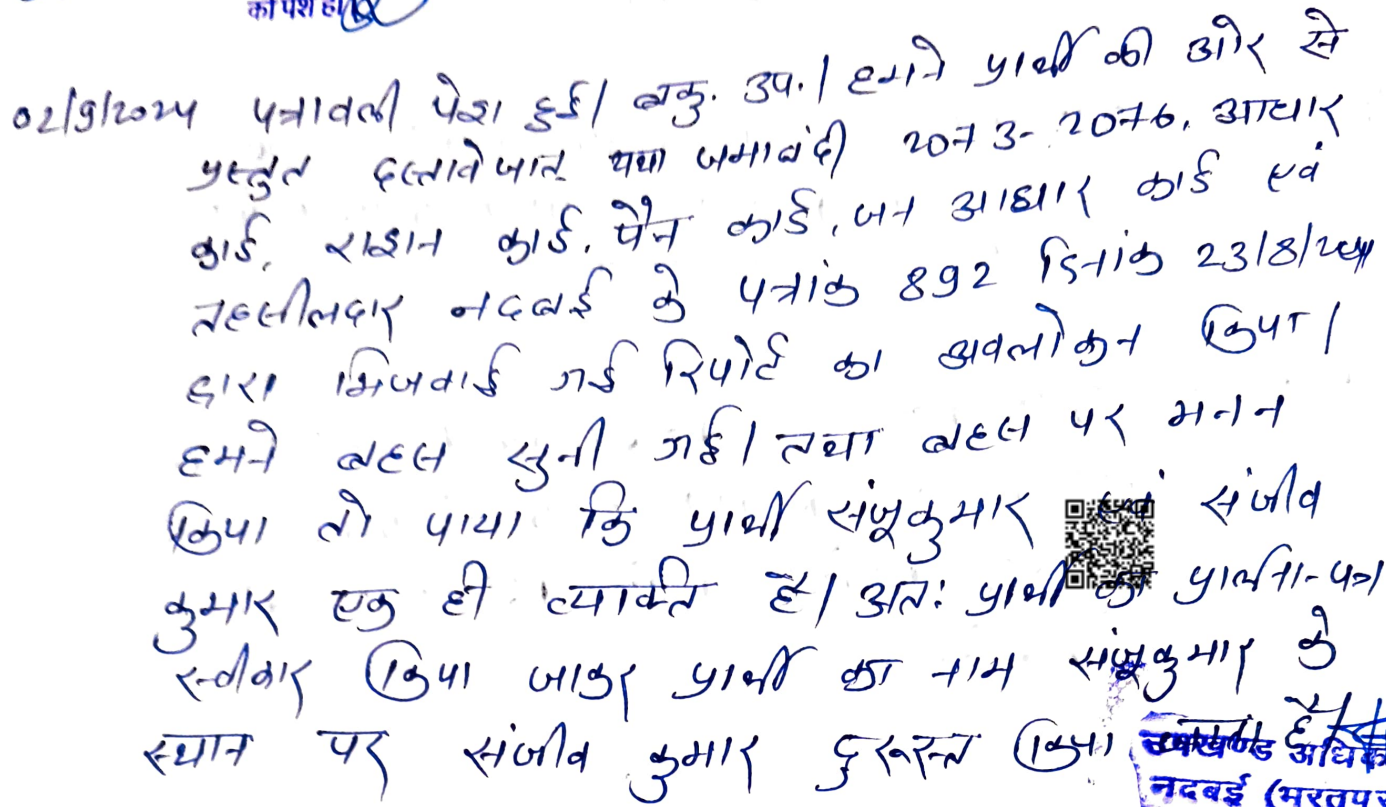 को पेश हो
02/9/2024 पत्रावली पेश हुई। वकु. उप.। हमने प्रार्थी की ओर से
प्रस्तुत दस्तावेजात यथा जमाबंदी 2073-2076, आधार
कार्ड, राशन कार्ड, पैन कार्ड, जन आधार कार्ड एवं
तहसीलदार नदबई के पत्रांक 892 दिनांक 23/8/2024
द्वारा भिजवाई गई रिपोर्ट का अवलोकन किया।
हमने बहस सुनी गई। तथा बहस पर मनन
किया तो पाया कि प्रार्थी संजूकुमार एवं संजीव
कुमार एक ही व्यक्ति है। अतः प्रार्थी का प्रार्थना-पत्र
स्वीकार किया जाकर प्रार्थी का नाम संजूकुमार के
स्थान पर संजीव कुमार दुरूस्त किया जाता है।
उपखण्ड अधिक
नदबई (भरतपुर